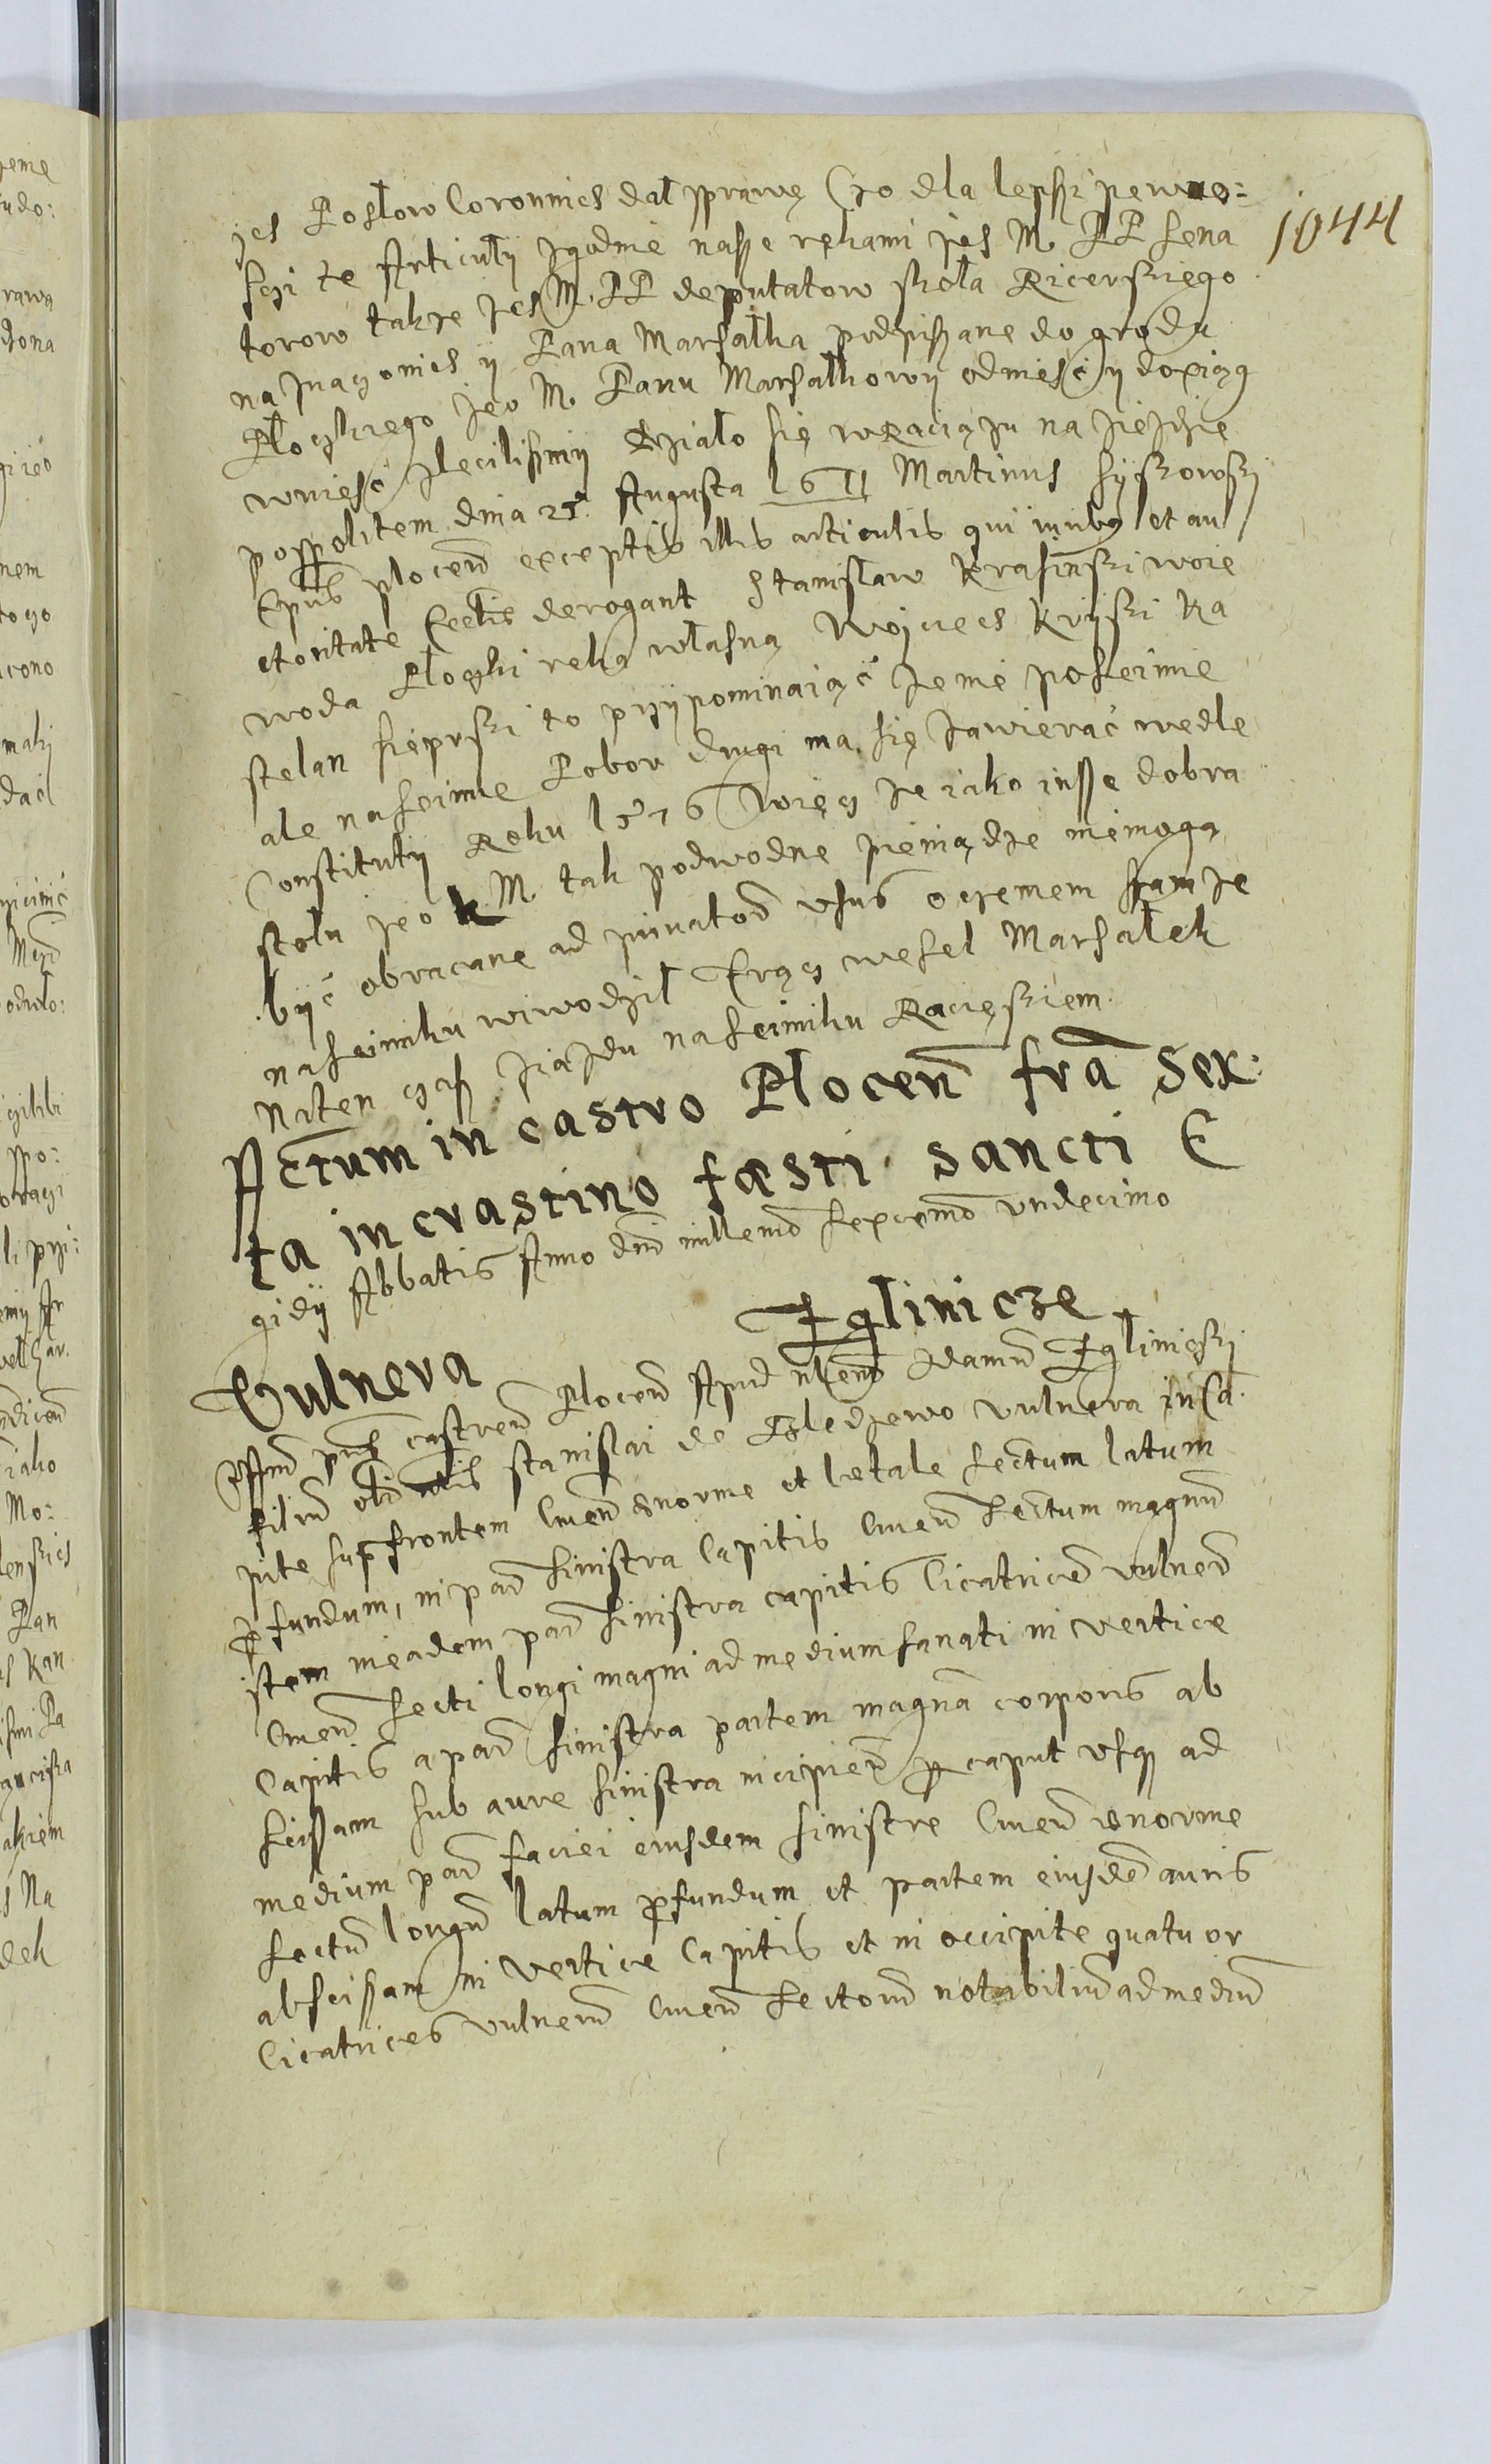 1044
ich Posłow Coronnich dał sprawę Czo dla lepszi pewno:
sczi te Articuły zgodnie nasze rękami ich M. PP Sena
torow także ich M. PP deputatow z koła Ricerskiego
na znaczonich y Pana Marsałka podpiszane do grodu
Ploczkiego jeo M. Panu Marsałkowy odnieść y do xiąg
wnieść zleciliszmy Działo się w Raciążu na zieździe
pospolitem dnia 25 Augusta 1611 Martinus Szyszkowski
Epūs plocen̄ exceptis illis articulis qui iuribq et au
ctoritate Eccl̄ie derogant Stanisław Krasinski woie
woda Ploczki ręką własną Woiciech Kryski Ka
stelan Sieprski to przypominaiąć że nie po Seimie
ale na Seimie Pobor drugi ma się zawierać wedle
Constituty Roku 1576 Więcz że iako insze dobra
stołu jeo K M. tak podwodne pieniądze nie mogą
być obracane ad privator̄ usus o czemem sam że
na Seimiku wiwodził Erącz Wessel Marsałek
na ten czas ziazdu na Seimiku Raciąskiem
Actum in castro Plocen̄ fr̄a Sex:
ta in crastino fæsti sancti E
gidy Abbatis Anno dn̄i millemo Sexcemo undecimo
Igliniczke
Vulnera
Offm̄ pn̄s castren̄ Plocen̄ Apud nten̄ Adamū Igliniczki
filiū olī nl̄is Stanislai de Gledzewo vulnera in Ca
pite sup frontem Cruen̄ enorme et letale Sectum latum
pfundum, in par̄ Sinistra Capitis Cruen̄ Sectum magnū
istem in eadem par̄ Sinistra capitis Cicatricē vulner̄
Cruen̄ Secti longi magni ad medium sanati in vertice
Capitis a par̄ Sinistra partem magnā corporis ab
scissam sub aure Sinistra incipien̄ p caput usq ad
medium par̄ faciei eiusdem Sinistre Cruen̄ enorme
Sectū longū latum pfundum et partem eiusdē auris
abscissam in vertice Capitis et in occipite quatuor
Cicatrices vulnerū Cruen̄ Sectorū notabiliū ad mediū